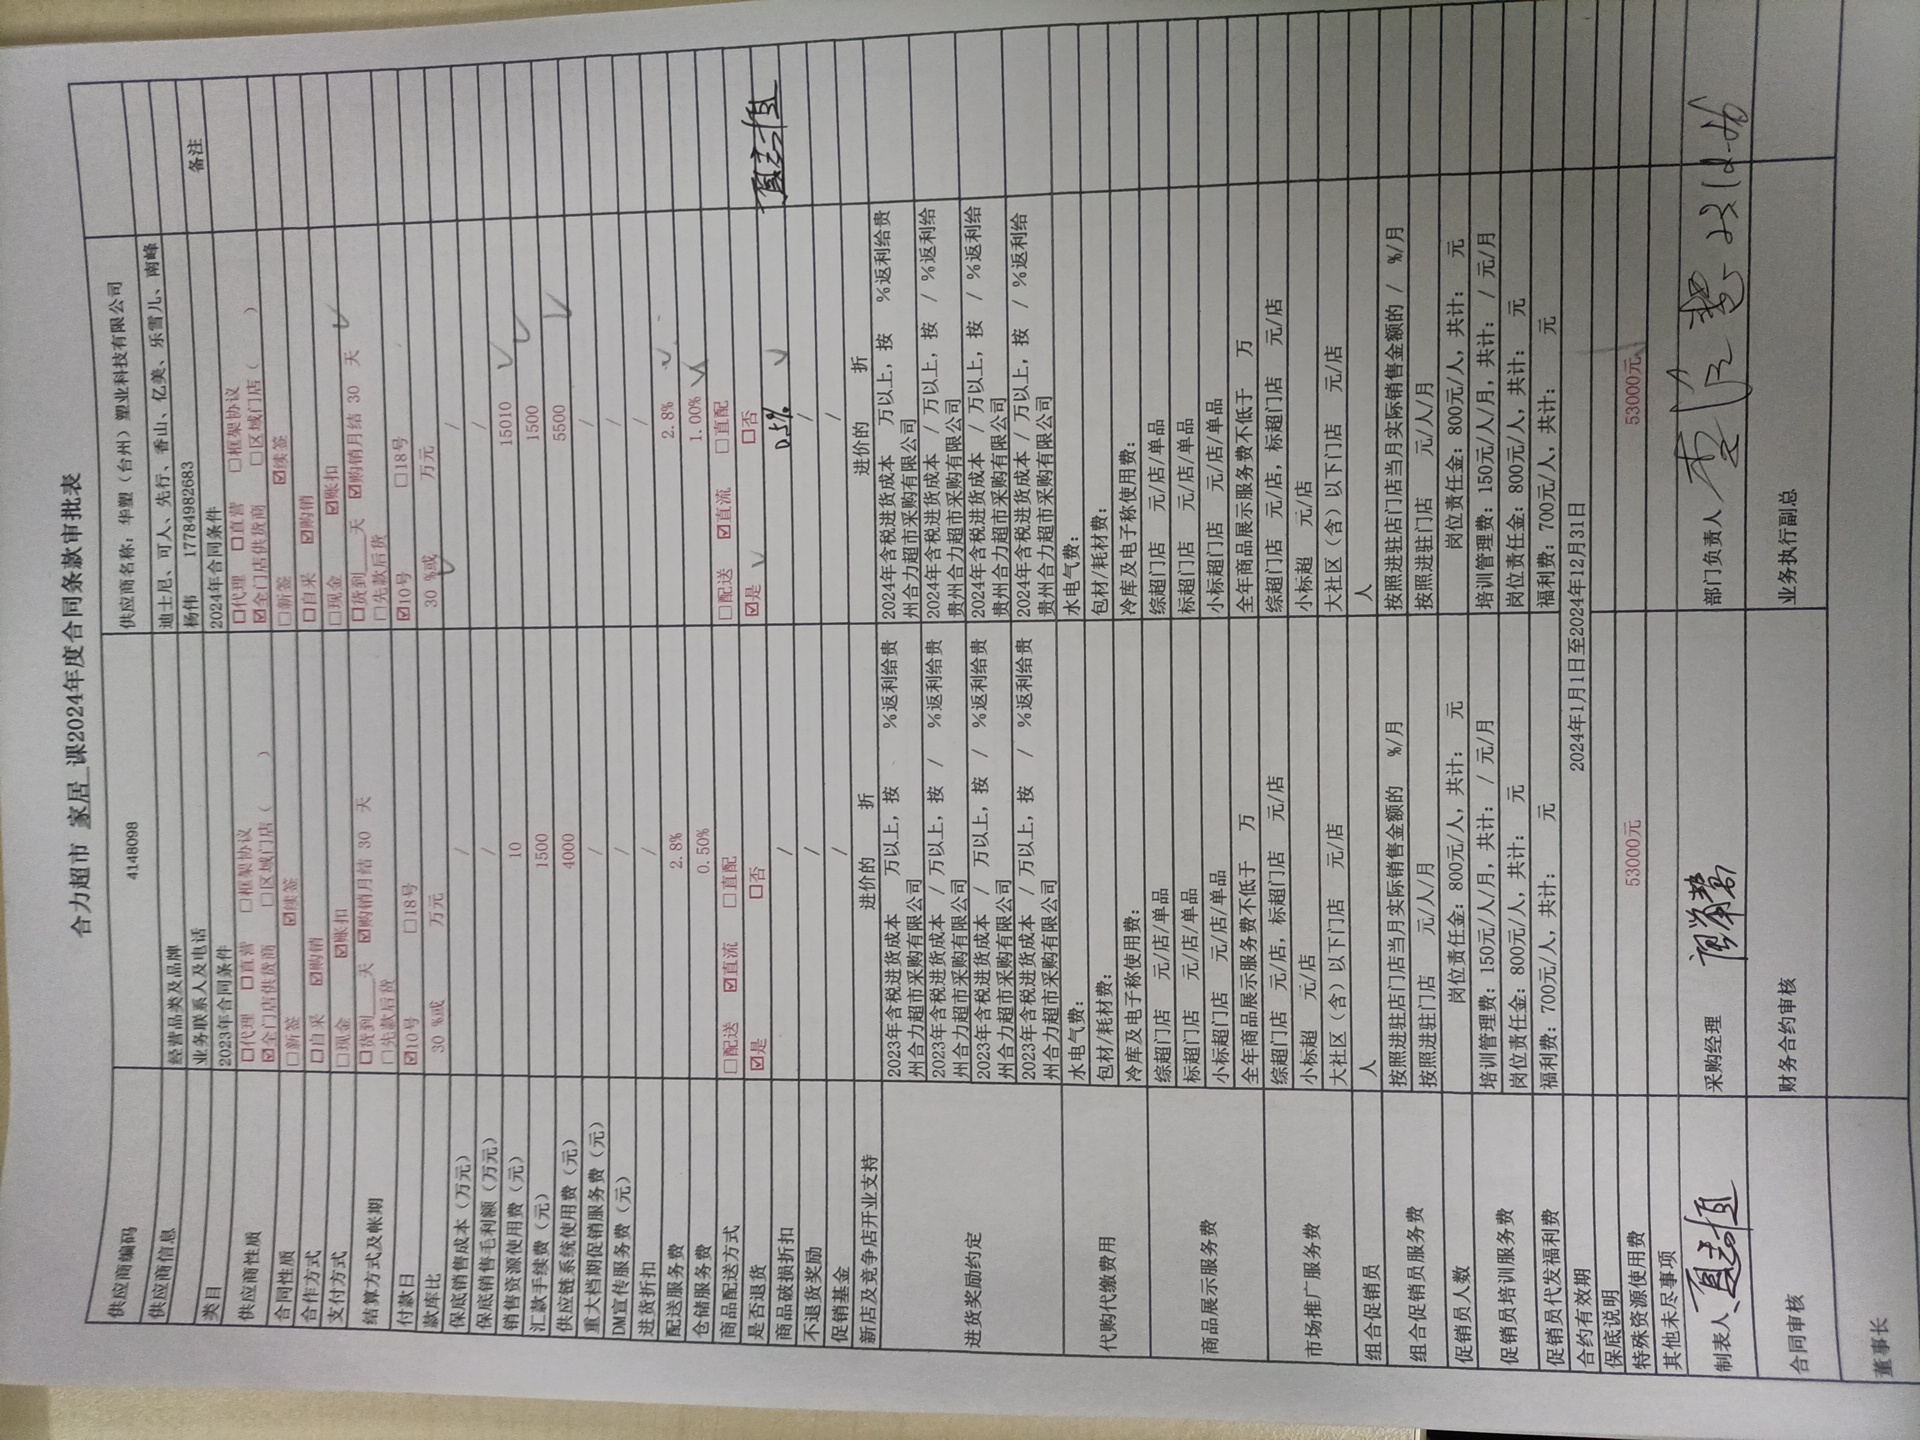 合力超市 家居 课2024年度合同条款审批表
供应商编码 4148098 供应商名称：华塑（台州）塑业科技有限公司
供应商信息 经营品类及品牌 迪士尼、可人、先行、香山、亿美、乐雪儿、南峰
业务联系人及电话 杨伟 17784982683
类目 2023年合同条件 2024年合同条件 备注
供应商性质 □代理 □直营 □框架协议 □代理 □直营 □框架协议
☑全门店供货商 □区域门店（ ） ☑全门店供货商 □区域门店（ ）
合同性质 □新签 ☑续签 □新签 ☑续签
合作方式 □自采 ☑购销 □自采 ☑购销
支付方式 □现金 ☑账扣 □现金 ☑账扣
结算方式及帐期 □货到___天 ☑购销月结 30 天 □货到___天 ☑购销月结 30 天
□先款后货 □先款后货
付款日 ☑10号 □18号 ☑10号 □18号
款库比 30 %或 万元 30 %或 万元
保底销售成本（万元） / /
保底销售毛利额（万元） / /
销售资源使用费（元） 10 15010
汇款手续费（元） 1500 1500
供应链系统使用费（元） 4000 5500
重大档期促销服务费（元） / /
DM宣传服务费（元） / /
进货折扣 / /
配送服务费 2.8% 2.8%
仓储服务费 0.50% 1.00%
商品配送方式 □配送 ☑直流 □直配 □配送 ☑直流 □直配
是否退货 ☑是 □否 ☑是 □否
商品破损折扣 / 0.5%
不退货奖励 / /
促销基金 / /
新店及竞争店开业支持 进价的 折 进价的 折
进货奖励约定 2023年含税进货成本 万以上，按 %返利给贵 2024年含税进货成本 万以上，按 %返利给贵
州合力超市采购有限公司 州合力超市采购有限公司
2023年含税进货成本 / 万以上，按 / %返利给贵 2024年含税进货成本 / 万以上，按 / %返利给
州合力超市采购有限公司 贵州合力超市采购有限公司
2023年含税进货成本 / 万以上，按 / %返利给贵 2024年含税进货成本 / 万以上，按 / %返利给
州合力超市采购有限公司 贵州合力超市采购有限公司
2023年含税进货成本 / 万以上，按 / %返利给贵 2024年含税进货成本 / 万以上，按 / %返利给
州合力超市采购有限公司 贵州合力超市采购有限公司
代购代缴费用 水电气费： 水电气费：
包材/耗材费： 包材/耗材费：
冷库及电子称使用费： 冷库及电子称使用费：
商品展示服务费 综超门店 元/店/单品 综超门店 元/店/单品
标超门店 元/店/单品 标超门店 元/店/单品
小标超门店 元/店/单品 小标超门店 元/店/单品
全年商品展示服务费不低于 万 全年商品展示服务费不低于 万
市场推广服务费 综超门店 元/店，标超门店 元/店 综超门店 元/店，标超门店 元/店
小标超 元/店 小标超 元/店
大社区（含）以下门店 元/店 大社区（含）以下门店 元/店
组合促销员 人 人
组合促销员服务费 按照进驻店门店当月实际销售金额的 %/月 按照进驻店门店当月实际销售金额的 / %/月
按照进驻门店 元/人/月 按照进驻门店 元/人/月
促销员人数 岗位责任金：800元/人，共计： 元 岗位责任金：800元/人，共计： 元
促销员培训服务费 培训管理费：150元/人/月，共计： / 元/月 培训管理费：150元/人/月，共计： / 元/月
岗位责任金：800元/人，共计： 元 岗位责任金：800元/人，共计： 元
促销员代发福利费 福利费：700元/人，共计： 元 福利费：700元/人，共计： 元
合约有效期 2024年1月1日至2024年12月31日
保底说明
特殊资源使用费 53000元 53000元
其他未尽事项
制表人 采购经理 部门负责人
合同审核 财务合约审核 业务执行副总
董事长